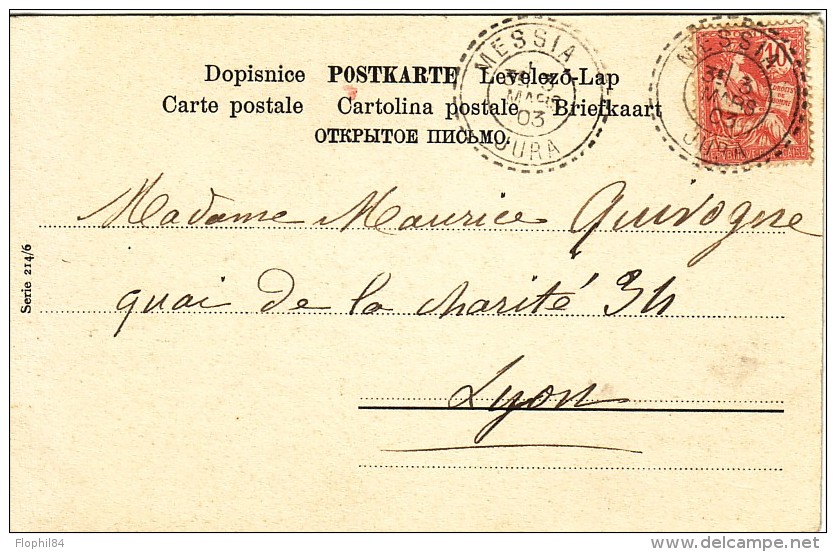 Dopisnice POSTKARTE Levelező-Lap
Carte postale Cartolina postale Briefkaart
ОТКРЫТОЕ ПИСЬМО.
MESSIA
3
MARS
03
JURA
MESSIA
3
MARS
03
JURA
10
DROITS DE L'HOMME
Madame Maurice Quivogne
quai de la charité 34
Lyon
Serie 214/6
Flophil84
www.delcampe.net